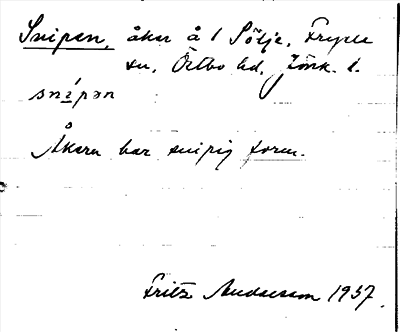 Snipen, åker å 1 Sölje, Fryele
sn, Östbo hd, Jönk. l.
snípən
Åkern har snipig form.
Fritz Andersson 1937.